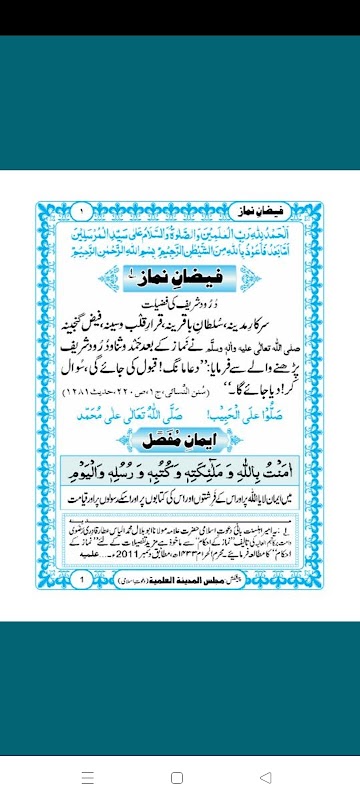 فیضانِ نماز
۱
اَلْحَمْدُ لِلّٰهِ رَبِّ الْعٰلَمِیْنَ وَ الصَّلٰوةُ وَ السَّلَامُ عَلٰی سَیِّدِ الْمُرْسَلِیْنَ
اَمَّا بَعْدُ فَاَعُوْذُ بِاللّٰهِ مِنَ الشَّیْطٰنِ الرَّجِیْمِ بِسْمِ اللّٰهِ الرَّحْمٰنِ الرَّحِیْمِ
فیضانِ نماز ۱
دُرُود شریف کی فضیلت
سرکارِ مدینہ، سُلطانِ باقرینہ، قرارِ قلب و سینہ، فیض گنجینہ
صلی اللہ تعالٰی علیہ واٰلہٖ وسلّم نے نَماز کے بعد حَمْد و ثنا و دُرُود شریف
پڑھنے والے سے فرمایا: ’’دعا مانگ! قبول کی جائے گی، سُوال
کر! دیا جائے گا۔‘‘ (سُنَنِ النَّسائی، ج۱، ص۲۲۰، حدیث ۱۲۸۱)
صَلُّوْا عَلَی الْحَبِیْب! صَلَّی اللّٰهُ تَعَالٰی عَلٰی مُحَمَّد
ایمانِ مُفَصَّل
اٰمَنْتُ بِاللّٰهِ وَ مَلٰٓئِكَتِهٖ وَ كُتُبِهٖ وَ رُسُلِهٖ وَ الْیَوْمِ
میں ایمان لایا اللہ پر اور اس کے فرشتوں اور اس کی کتابوں پر اور اسکے رسولوں پر اور قیامت
۱؎ یہ امیر اہلسنت بانیِ دعوتِ اسلامی حضرت علامہ مولانا ابو بلال محمد الیاس عطار قادری رضوی
دامت برکاتہم العالیہ کی تالیف ’’نماز کے احکام‘‘ سے ماخوذ ہے مزید تفصیلات کے لئے ’’نماز کے
احکام‘‘ کا مطالعہ فرمائیے۔ محرم الحرام ۱۴۳۳ھ، مطابق دسمبر 2011ء ... علمیہ
پیشکش: مجلس المدینة العلمیة (دعوتِ اسلامی)
1